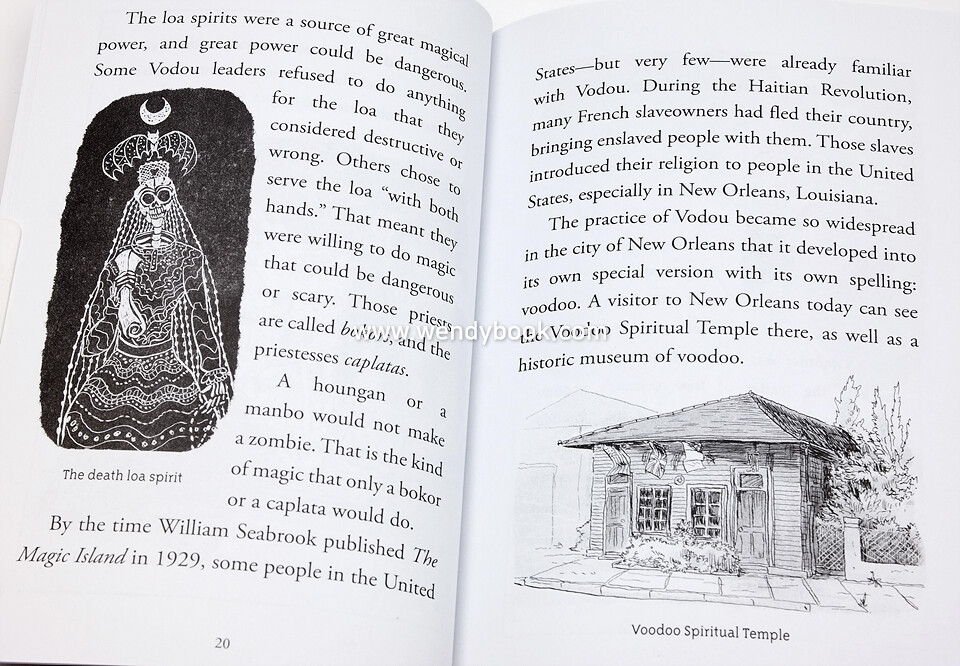 The loa spirits were a source of great magical
power, and great power could be dangerous.
Some Vodou leaders refused to do anything
for the loa that they
considered destructive or
wrong. Others chose to
serve the loa “with both
hands.” That meant they
were willing to do magic
that could be dangerous
or scary. Those priests
are called bokors, and the
priestesses caplatas.
A houngan or a
manbo would not make
a zombie. That is the kind
of magic that only a bokor
or a caplata would do.
The death loa spirit
By the time William Seabrook published The
Magic Island in 1929, some people in the United
20
States—but very few—were already familiar
with Vodou. During the Haitian Revolution,
many French slaveowners had fled their country,
bringing enslaved people with them. Those slaves
introduced their religion to people in the United
States, especially in New Orleans, Louisiana.
The practice of Vodou became so widespread
in the city of New Orleans that it developed into
its own special version with its own spelling:
voodoo. A visitor to New Orleans today can see
the Voodoo Spiritual Temple there, as well as a
historic museum of voodoo.
Voodoo Spiritual Temple
www.wendybook.com